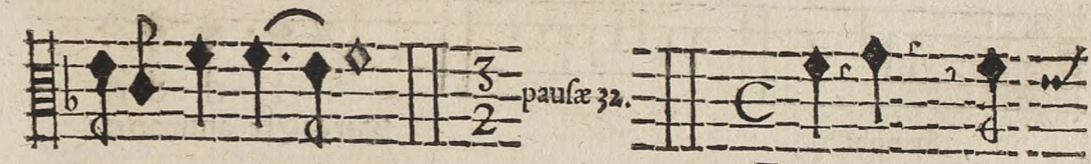 3
2 pauſæ 32. C